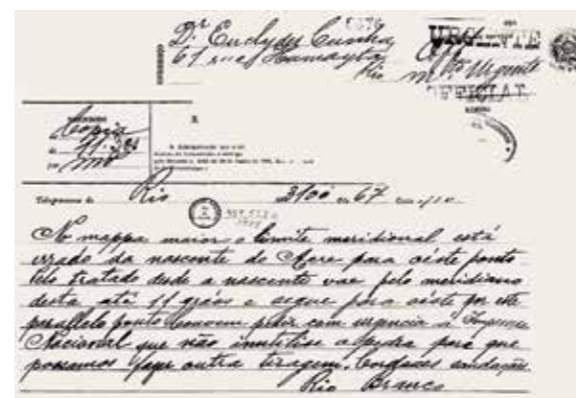 Dr Euclydes Cunha
67 rua Humaytá
Rio
URGENTE
Mto Urgente
OFFICIAL
Copia
Telegramma de Rio 3100 67
No mappa maior o limite meridional está
errado da nascente do Acre para oéste ponto
Pelo tratado desde a nascente vae pelo meridiano
desta até 11 gráos e segue para oéste por este
parallelo ponto Convem pedir com urgencia á Imprensa
Nacional que não inutilise a pedra para que
possamos fazer outra tiragem. Cordeaes saudações.
Rio Branco